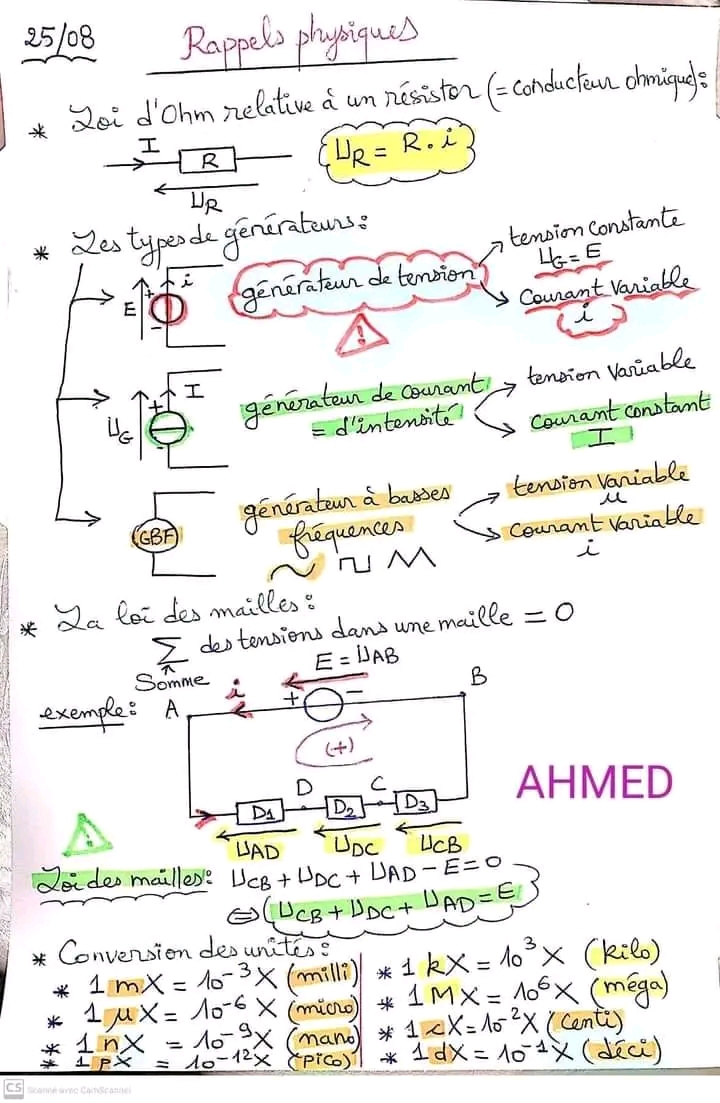 25/08
Rappels physiques
* Loi d'Ohm relative à un résistor (= conducteur ohmique):
I
R
UR
UR = R . i
* Les types de générateurs:
E
+
-
i
générateur de tension
!
tension constante
UG = E
Courant variable
i
UG
+
-
I
générateur de courant
= d'intensité
tension variable
Courant constant
I
GBF
générateur à basses
fréquences
tension variable
u
Courant variable
i
* La loi des mailles:
∑ des tensions dans une maille = 0
Somme
exemple:
E = UAB
i
+
-
A
B
(+)
D
C
D1
D2
D3
UAD
UDC
UCB
AHMED
!
Loi des mailles: UCB + UDC + UAD - E = 0
⇔ (UCB + UDC + UAD = E
* Conversion des unités:
* 1 mX = 10⁻³X (milli)
* 1 µX = 10⁻⁶ X (micro)
* 1 nX = 10⁻⁹X (nano)
* 1 pX = 10⁻¹²X (pico)
* 1 kX = 10³X (kilo)
* 1 MX = 10⁶X (méga)
* 1 cX = 10⁻²X (centi)
* 1 dX = 10⁻¹X (déci)
CS Scanné avec CamScanner